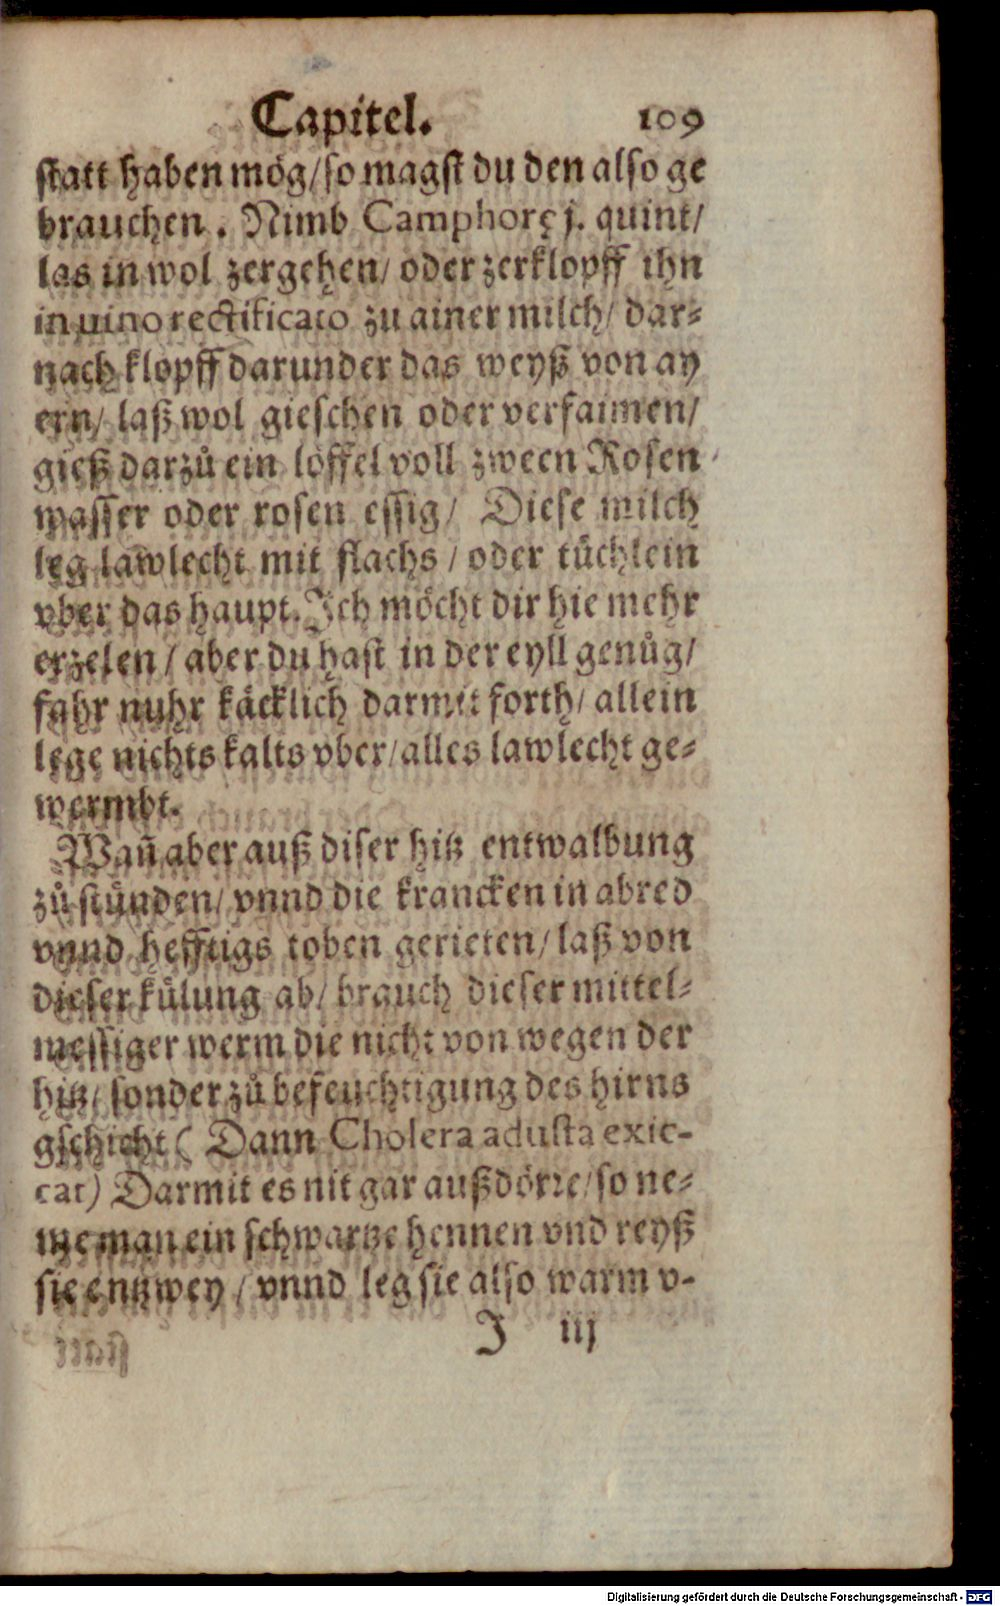 Capitel. 109
statt haben mög/so magst du den also ge
brauchen. Nimb Camphorę j. quint/
las in wol zergehen/ oder zerklopff ihn
in uino rectificato zu ainer milch/ dar-
nach klopff darunder das weyß von ay
ern/ laß wol gieschen oder verfaimen/
gieß darzů ein löffel voll zween Rosen
wasser oder rosen essig/ Diese milch
leg lawlecht mit flachs/ oder tüchlein
vber das haupt. Ich möcht dir hie mehr
erzelen/ aber du hast in der eyll genůg/
fahr nuhr käcklich darmit forth/ allein
lege nichts kalts vber/ alles lawlecht ge-
wermbt.
Wañ aber auß diser hitz entwalbung
zů stünden/ vnnd die krancken in abred
vnnd hefftigs toben gerieten/ laß von
dieser külung ab/ brauch dieser mittel-
messiger werm die nicht von wegen der
hitz/ sonder zů befeuchtigung des hirns
gschicht ( Dann Cholera adusta exic-
cat) Darmit es nit gar außdörre/ so ne-
me man ein schwartze hennen vnd reyß
sie entzwey/ vnnd leg sie also warm v-
J iij
Digitalisierung gefördert durch die Deutsche Forschungsgemeinschaft - DFG